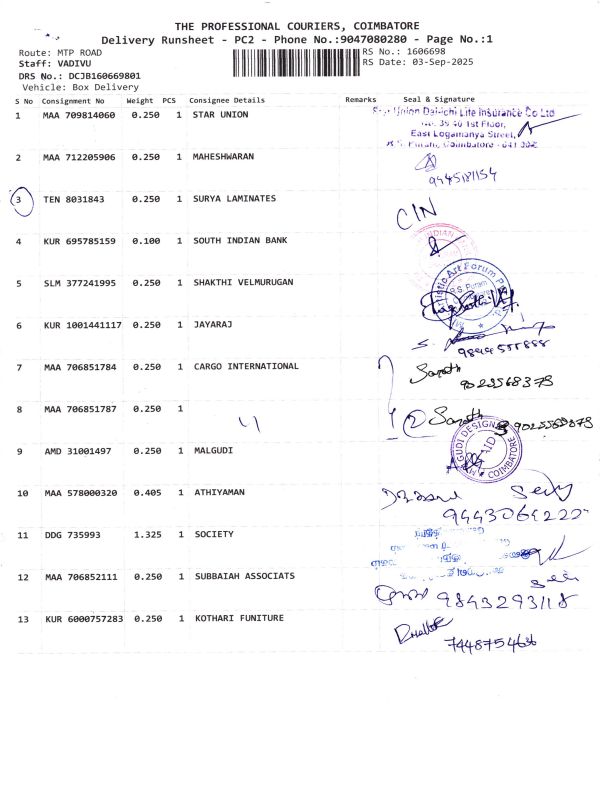 THE PROFESSIONAL COURIERS, COIMBATORE
Delivery Runsheet - PC2 - Phone No.:9047080280 - Page No.:1
Route: MTP ROAD
RS No.: 1606698
Staff: VADIVU
RS Date: 03-Sep-2025
DRS No.: DCJB160669801
Vehicle: Box Delivery
S No Consignment No Weight PCS Consignee Details Remarks Seal & Signature
1 MAA 709814060 0.250 1 STAR UNION
Star Union Dai-ichi Life Insurance Co Ltd
No. 39 40 1st Floor,
East Logamanya Street,
R.S. Puram, Coimbatore - 641 002
2 MAA 712205906 0.250 1 MAHESHWARAN
3 TEN 8031843 0.250 1 SURYA LAMINATES
C/N
4 KUR 695785159 0.100 1 SOUTH INDIAN BANK
INDIAN
5 SLM 377241995 0.250 1 SHAKTHI VELMURUGAN
Art Forum
R.S. Puram
6 KUR 1001441117 0.250 1 JAYARAJ
7 MAA 706851784 0.250 1 CARGO INTERNATIONAL
Sarath
8 MAA 706851787 0.250 1
2 Sarath
9 AMD 31001497 0.250 1 MALGUDI
GUDI DESIGN
PAID
COIMBATORE
10 MAA 578000320 0.405 1 ATHIYAMAN
11 DDG 735993 1.325 1 SOCIETY
12 MAA 706852111 0.250 1 SUBBAIAH ASSOCIATS
9843293118
13 KUR 6000757283 0.250 1 KOTHARI FUNITURE
7448754636